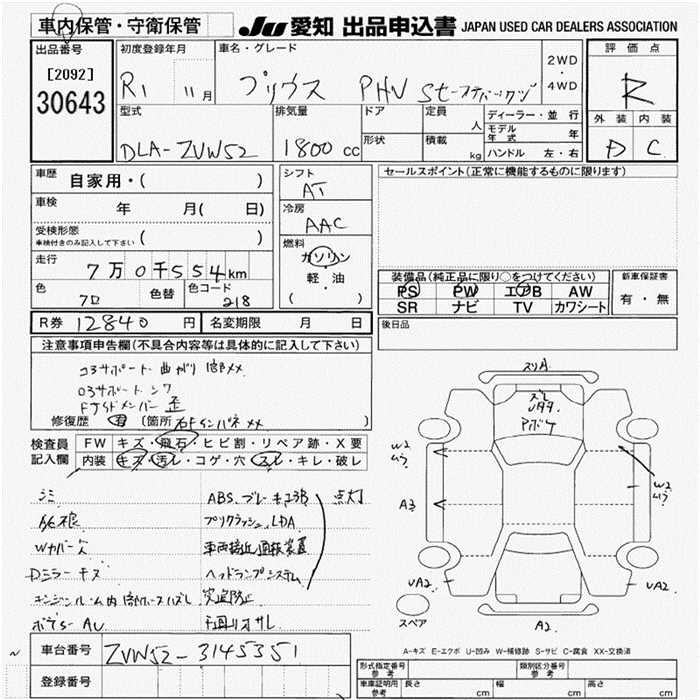 車内保管・守衛保管
JU 愛知 出品申込書 JAPAN USED CAR DEALERS ASSOCIATION
出品番号
[2092]
30643
初度登録年月
R1 11月
車名・グレード
プリウス PHV Sセーフティパッケージ
2WD
・
4WD
評価点
R
外装 内装
D C
型式
DLA-ZVW52
排気量
1800 cc
ドア
形状
定員 人
積載 kg
ディーラー・並行
モデル年式 年
ハンドル 左・右
車歴 自家用・( )
車検 年 月( 日)
受検形態
車検付きのみ記入して下さい ( )
走行 7万0千554km
色 色替 色コード
クロ 218
R券 12840 円 名変期限 月 日
シフト
AT
冷房
AAC
燃料
ガソリン
・
軽・油
( )
セールスポイント(正常に機能するものに限ります)
装備品(純正品に限り○をつけてください)
PS PW エアB AW
SR ナビ TV カワシート
新車保証書
有・無
後日品
注意事項申告欄(不具合内容等は具体的に記入して下さい)
コアサポート 曲がり
コアサポート
歪
修復歴 有 (箇所
検査員記入欄
FW キズ・飛石・ヒビ割・リペア跡・X要
内装 キズ・汚レ・コゲ・穴・スレ・キレ・破レ
シミ
Dミラーキズ
エンジンルーム内
ABS、ブレーキ 点灯
プリクラッシュ、LDA
車両接近通報装置
ヘッドランプシステム
スリA
Aボケ
W2
A3
W2
UA2
UA2
A2
スペア
A-キズ E-エクボ U-凹み W-補修跡 S-サビ C-腐食 XX-交換済
車台番号 ZVW52-3145351
登録番号
形式指定番号 参考
類別区分番号 参考
車庫証明用 参考 長さ cm 幅 cm 高さ cm